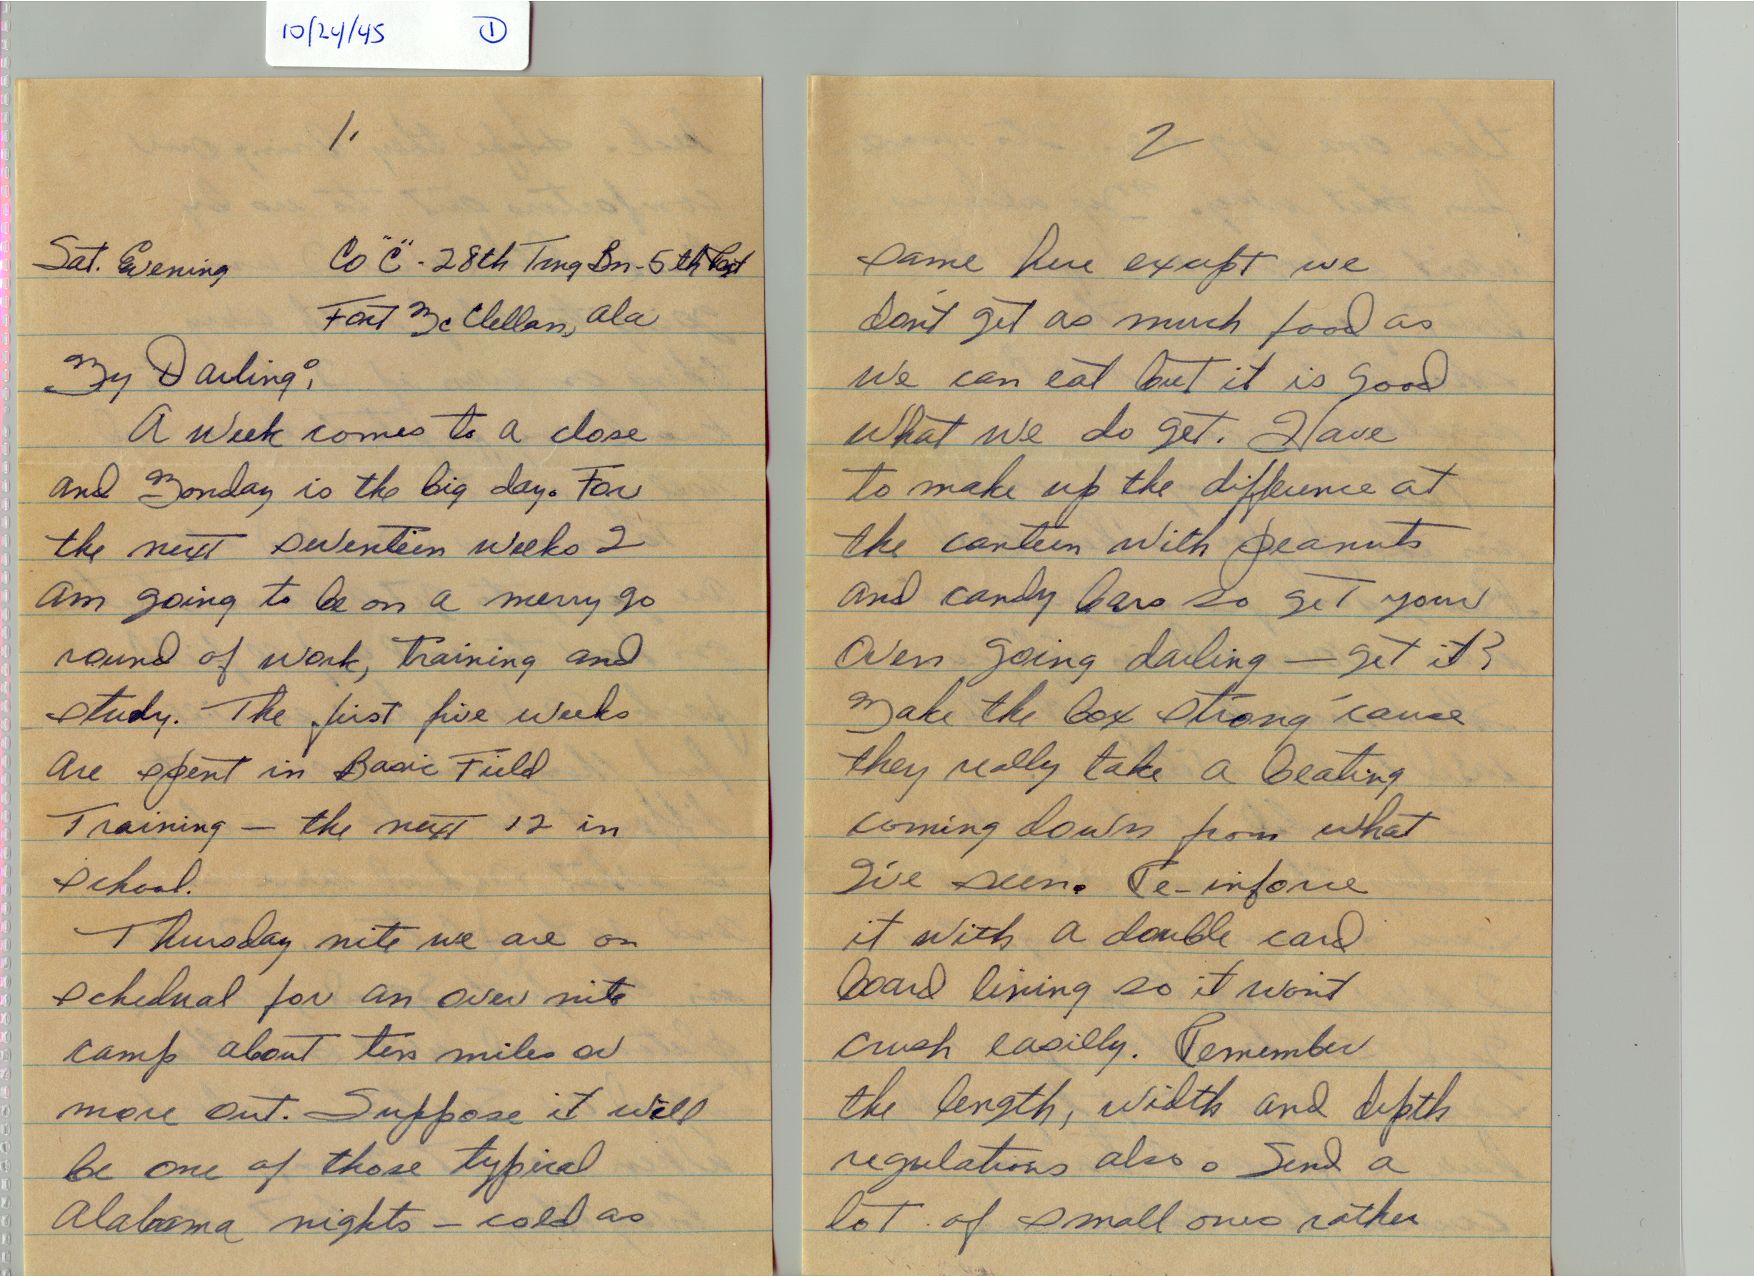 10/24/45 ①
1.
Sat. Evening Co "C" - 28th Trng Bn - 5th Regt
Fort McClellan, Ala
My Darling;
A week comes to a close
and Monday is the big day. For
the next seventeen weeks I
am going to be on a merry go
round of work, training and
study. The first five weeks
are spent in Basic Field
Training — the next 12 in
school.
Thursday nite we are on
schedual for an over nite
camp about ten miles or
more out. Suppose it will
be one of those typical
Alabama nights — cold as
2
same here except we
don't get as much food as
we can eat but it is good
what we do get. Have
to make up the difference at
the canteen with peanuts
and candy bars so get your
oven going darling — get it?
Make the box strong 'cause
they really take a beating
coming down from what
I've seen. Re-inforce
it with a double card
board lining so it won't
crush easilly. Remember
the length, width and depth
regulations also. Send a
lot of small ones rather